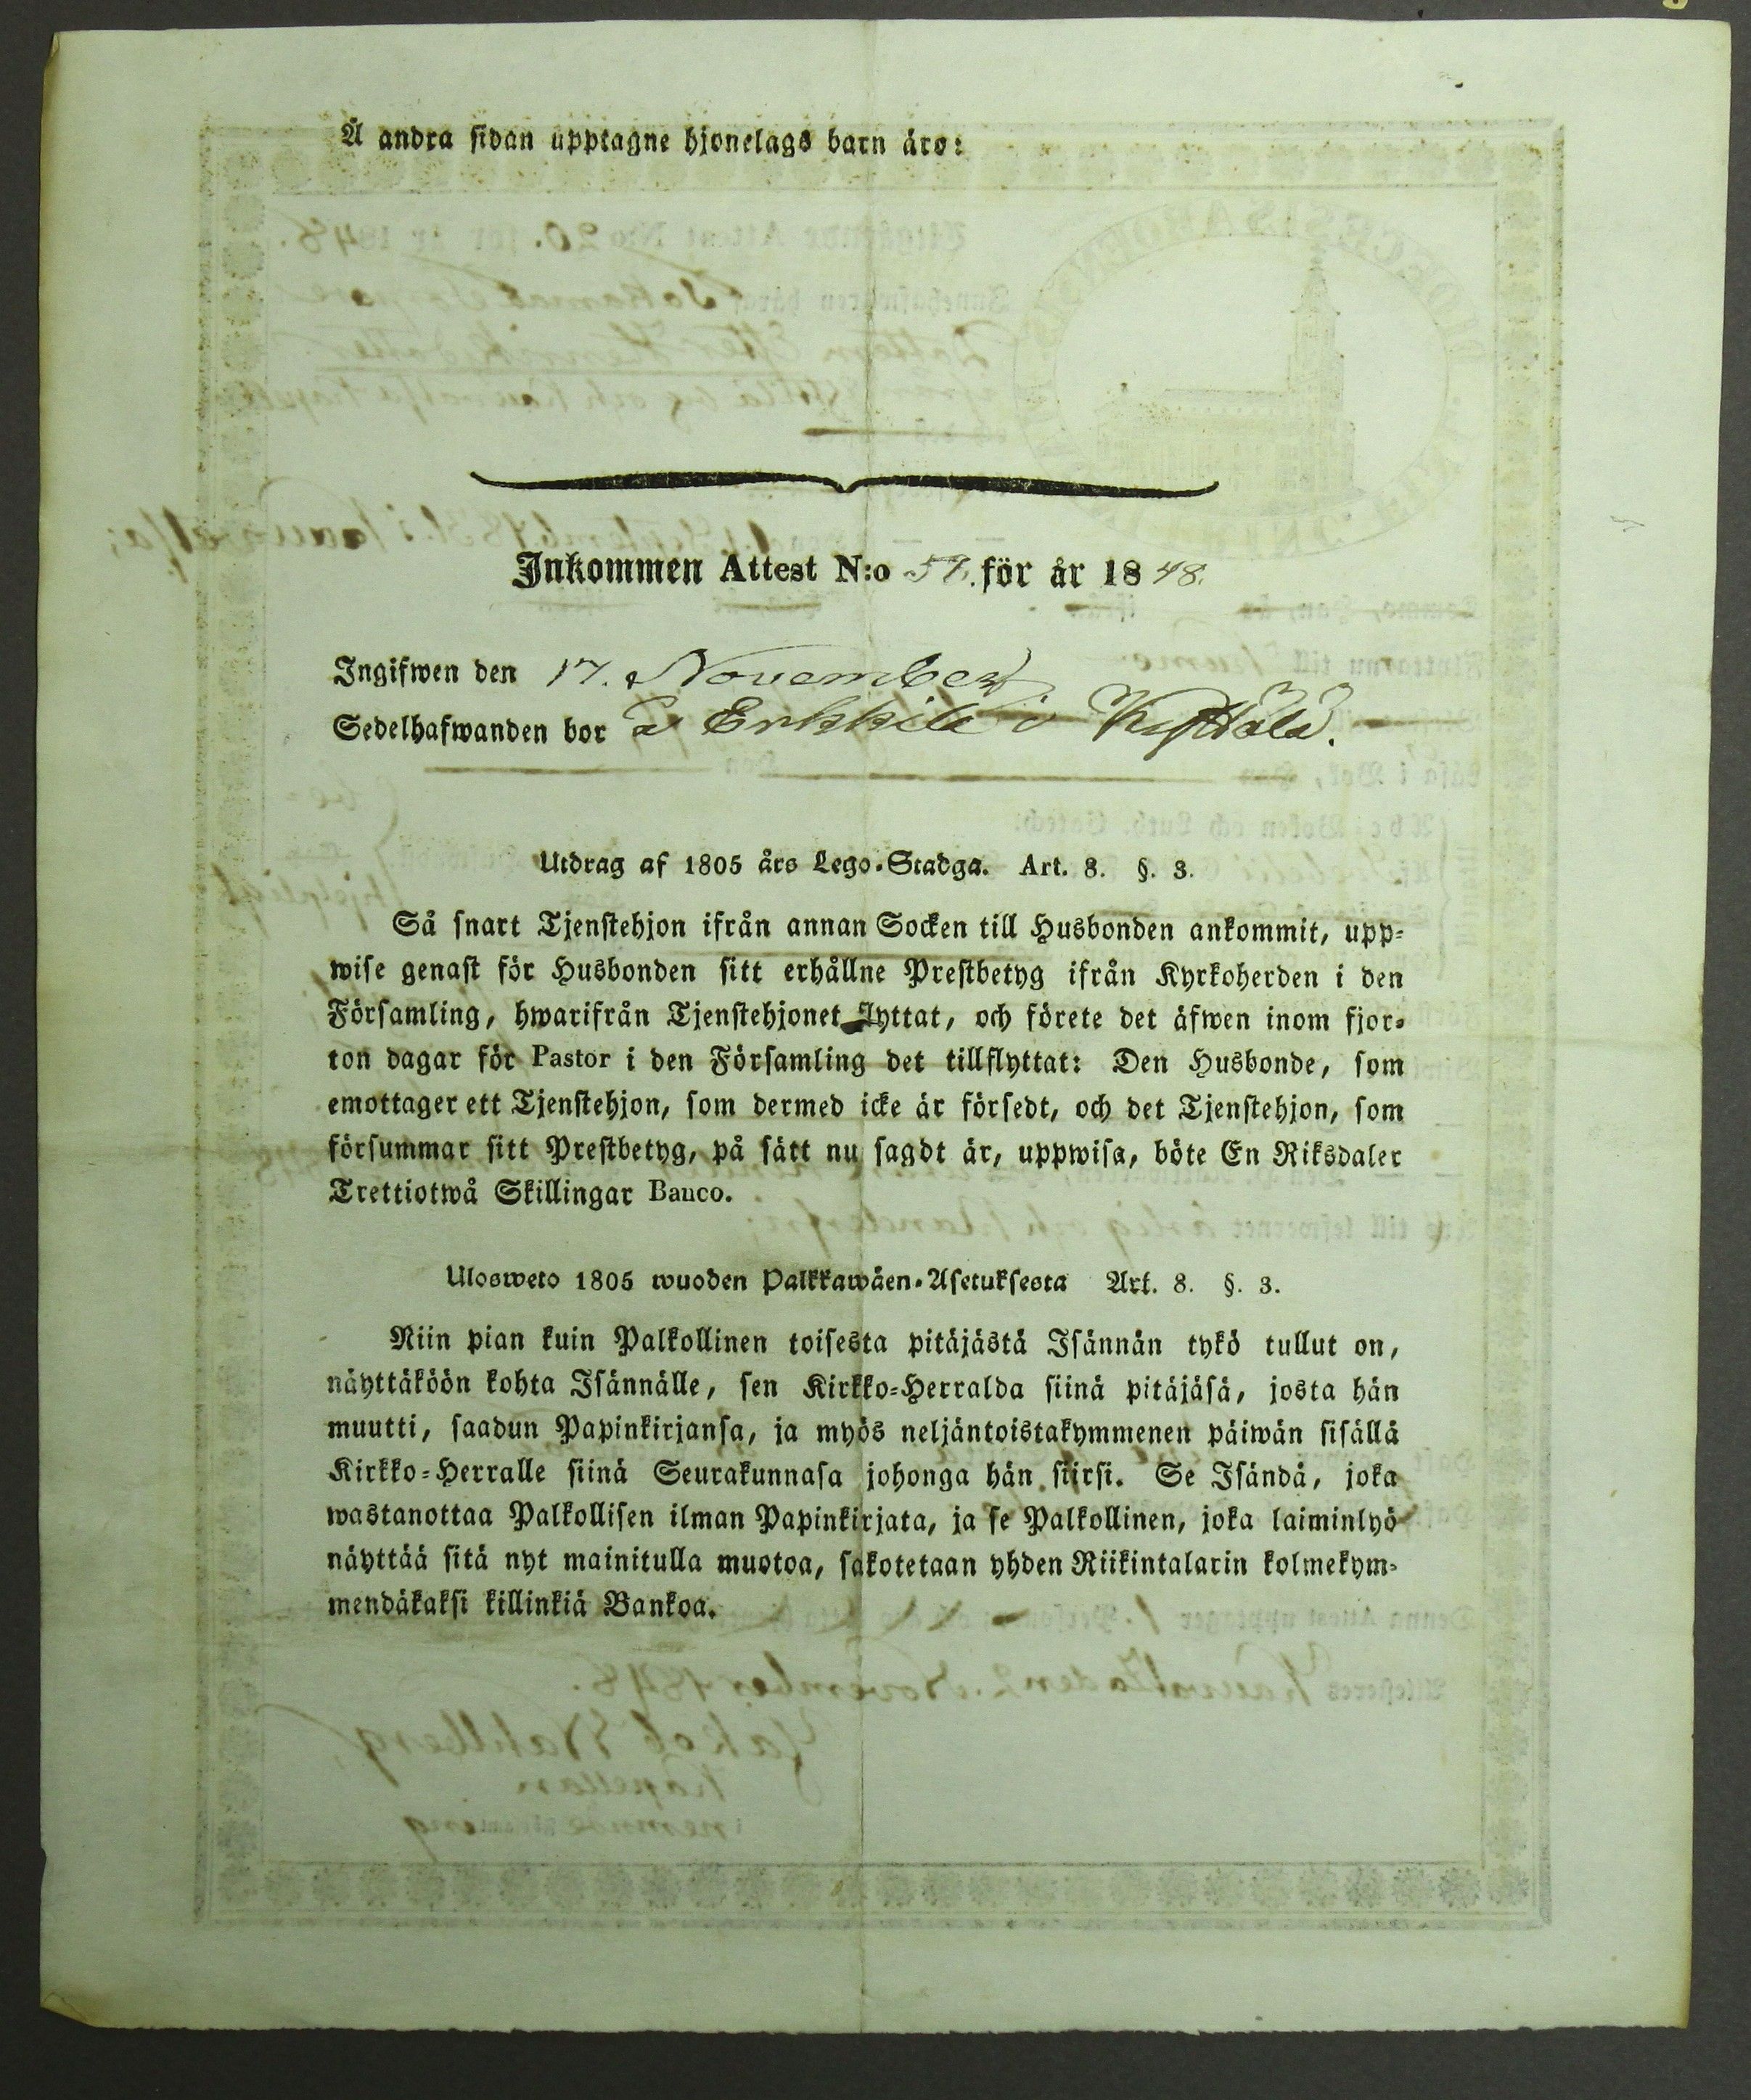 Å andra sidan upptagne hjonelags barn äro:
Inkommen Attest N:o 57. för år 1848.
Ingifwen den 17. November
Sedelhafwanden bor å Erkkilä i
Utdrag af 1805 års Lego-Stadga. Art. 8. §. 3.
Så snart Tjenstehjon ifrån annan Socken till Husbonden ankommit, upp-
wise genast för Husbonden sitt erhållne Prestbetyg ifrån Kyrkoherden i den
Församling, hwarifrån Tjenstehjonet flyttat, och förete det äfwen inom fjor-
ton dagar för Pastor i den Församling det tillflyttat: Den Husbonde, som
emottager ett Tjenstehjon, som dermed icke är försedt, och det Tjenstehjon, som
försummar sitt Prestbetyg, på sätt nu sagdt är, uppwisa, böte En Riksdaler
Trettiotwå Skillingar Banco.
Ulosweto 1805 wuoden Palkkawäen-Asetuksesta Art. 8. §. 3.
Niin pian kuin Palkollinen toisesta pitäjästä Isännän tykö tullut on,
näyttäköön kohta Isännälle, sen Kirkko-Herralda siinä pitäjäsä, josta hän
muutti, saadun Papinkirjansa, ja myös neljäntoistakymmenen päiwän sisällä
Kirkko-Herralle siinä Seurakunnasa johonga hän siirsi. Se Isändä, joka
wastanottaa Palkollisen ilman Papinkirjata, ja se Palkollinen, joka laiminlyö
näyttää sitä nyt mainitulla muotoa, sakotetaan yhden Riikintalarin kolmekym-
mendäkaksi killinkiä Bankoa.